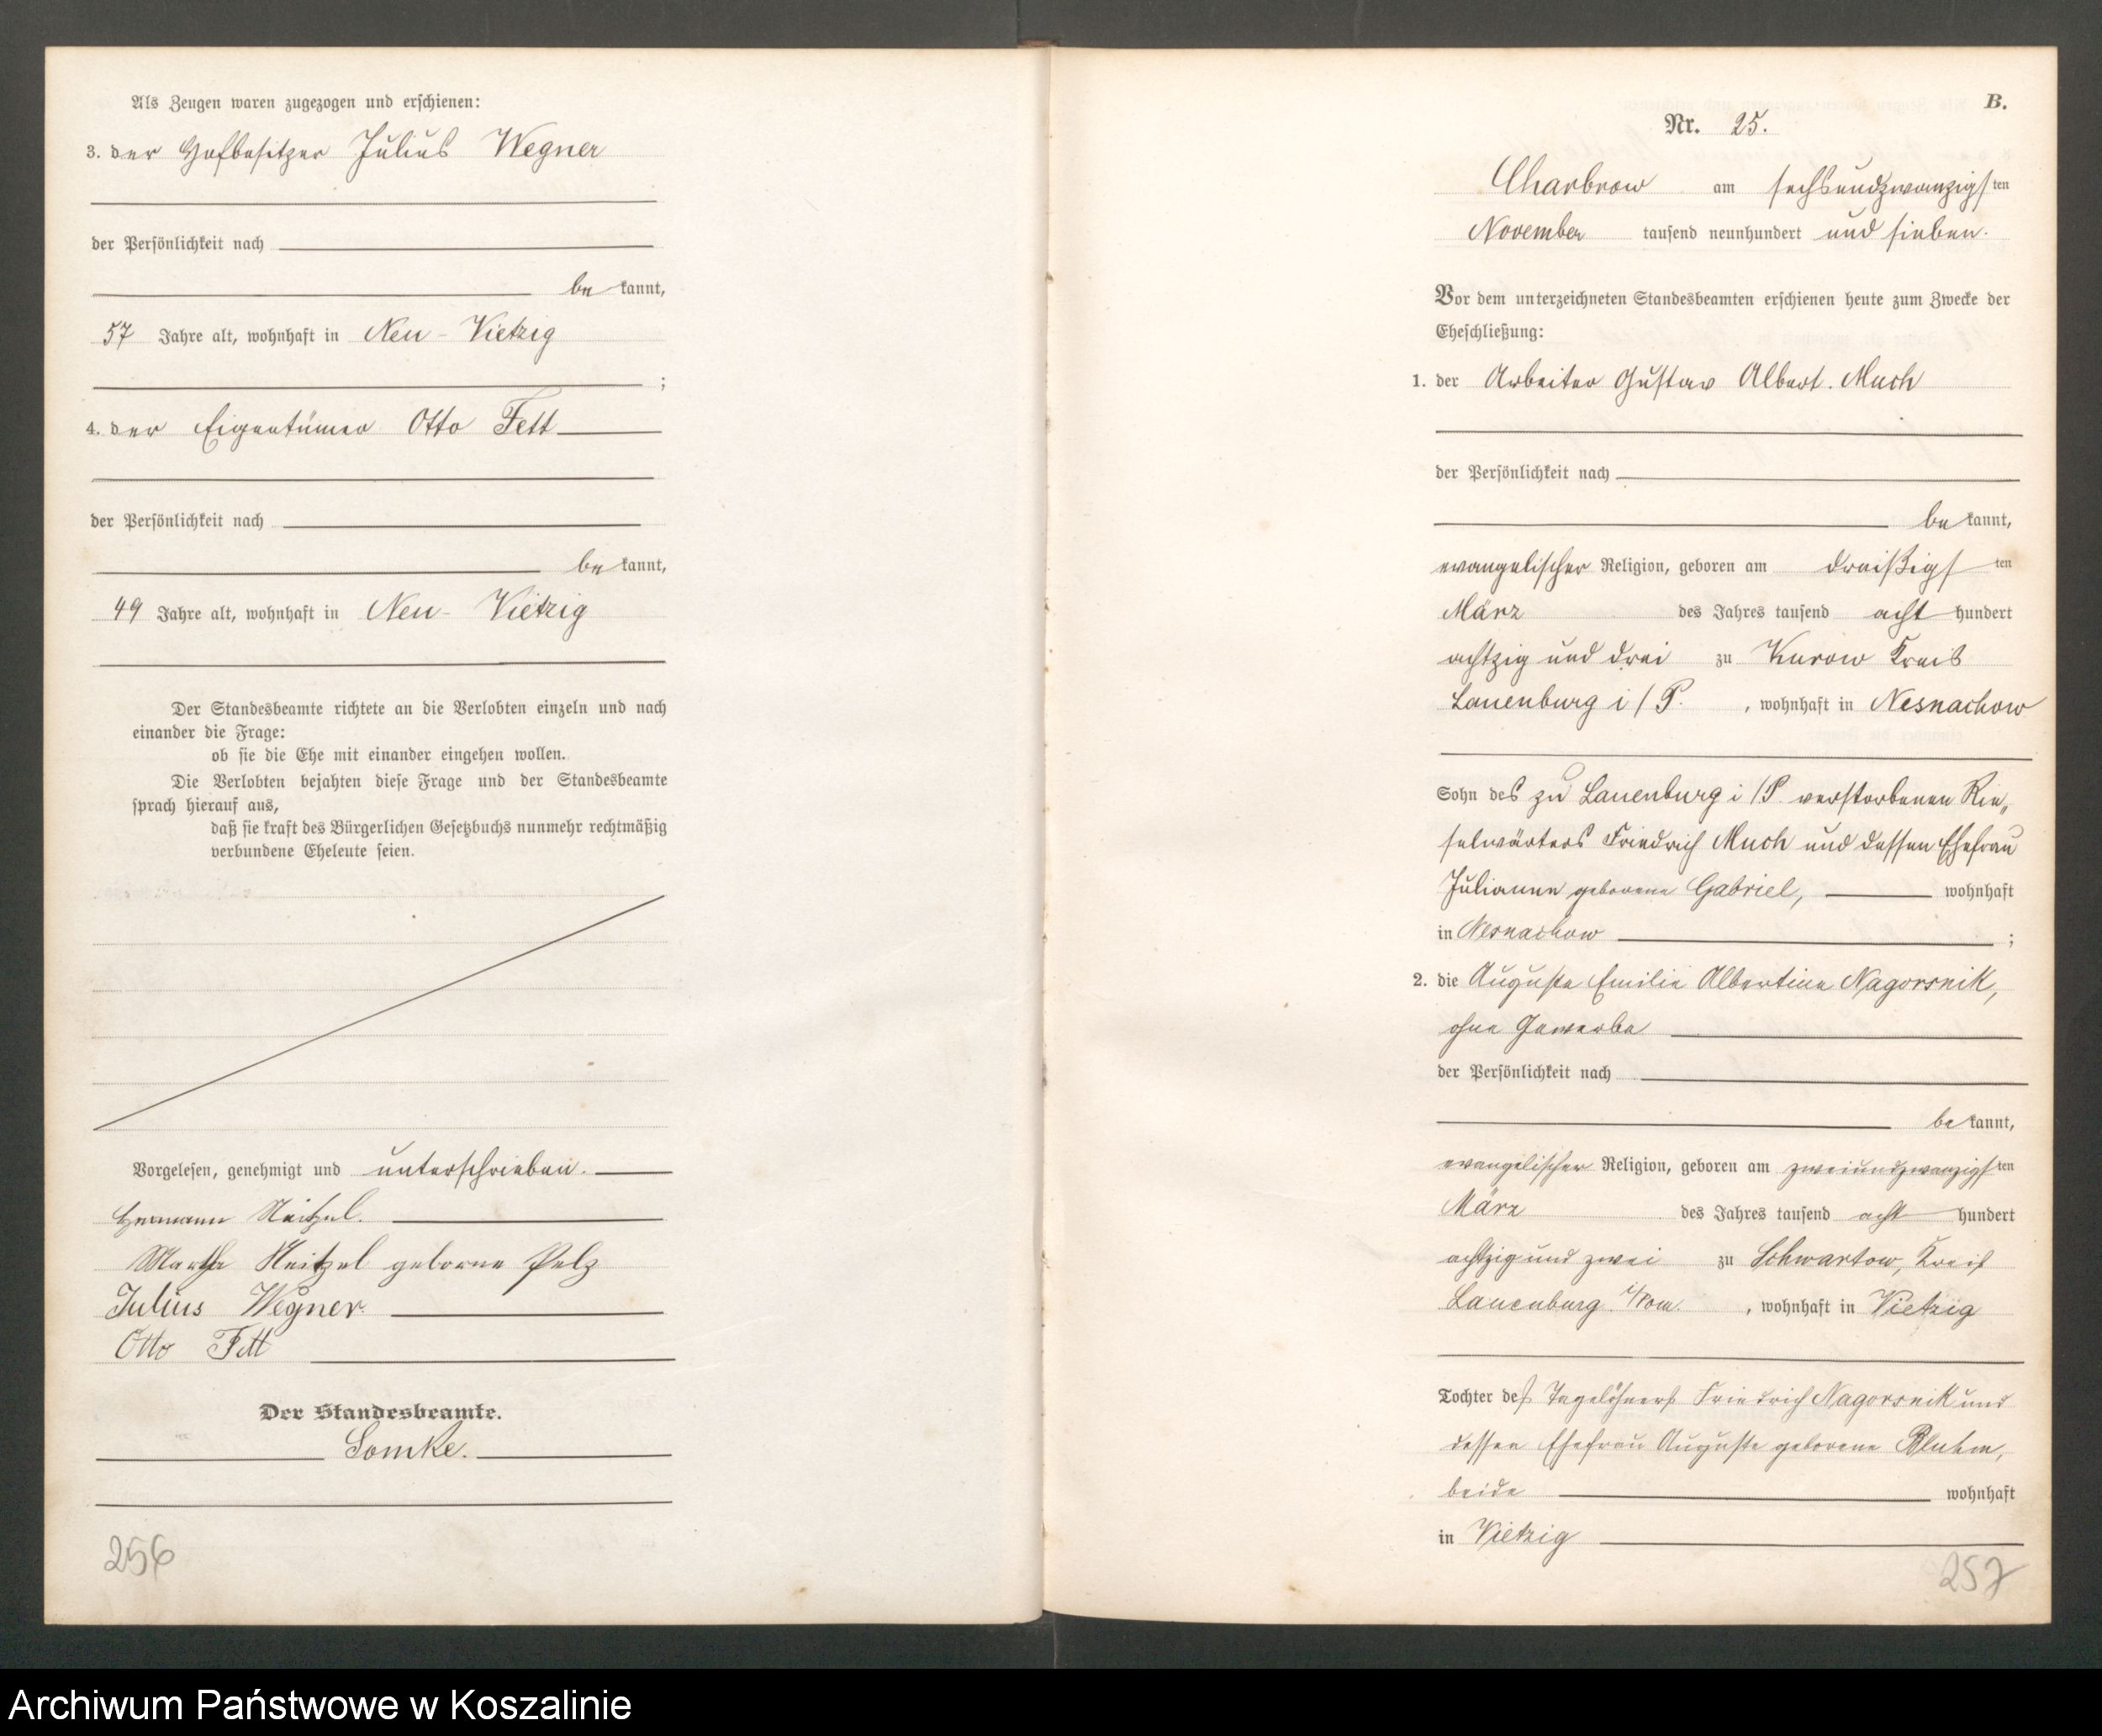 Als Zeugen waren zugezogen und erschienen:
3. der Hofbesitzer Julius Wegner
der Persönlichkeit nach
be kannt,
57 Jahre alt, wohnhaft in Neu-Vietzig
;
4. der Eigentümer Otto Fett
der Persönlichkeit nach
be kannt,
49 Jahre alt, wohnhaft in Neu-Vietzig
Der Standesbeamte richtete an die Verlobten einzeln und nach
einander die Frage:
ob sie die Ehe mit einander eingehen wollen.
Die Verlobten bejahten diese Frage und der Standesbeamte
sprach hierauf aus,
daß sie kraft des Bürgerlichen Gesetzbuchs nunmehr rechtmäßig
verbundene Eheleute seien.
Vorgelesen, genehmigt und unterschrieben.
Hermann Neitzel.
Martha Neitzel geborne Pelz
Julius Wegner
Otto Fett
Der Standesbeamte.
Lomke.
256
B.
Nr. 25.
Charbrow am sechsundzwanzigsten
November tausend neunhundert und sieben.
Vor dem unterzeichneten Standesbeamten erschienen heute zum Zwecke der
Eheschließung:
1. der Arbeiter Gustav Albert Much
der Persönlichkeit nach
be kannt,
evangelischer Religion, geboren am dreißigsten
März des Jahres tausend acht hundert
achtzig und drei zu Kurow Kreis
Lauenburg i/P. , wohnhaft in Nesnachow
Sohn des zu Lauenburg i/P verstorbenen Rie„
selwärters Friedrich Much und dessen Ehefrau
Julianne geborene Gabriel, wohnhaft
in Nesnachow ;
2. die Auguste Emilie Albertine Nagorsnik,
ohne Gewerbe
der Persönlichkeit nach
be kannt,
evangelischer Religion, geboren am zweiundzwanzigsten
März des Jahres tausend acht hundert
achtzig und zwei zu Schwartow, Kreis
Lauenburg i/Pom. , wohnhaft in Vietzig
Tochter des Tagelöhners Friedrich Nagorsnik und
dessen Ehefrau Auguste geborene Bluhm,
beide wohnhaft
in Vietzig
257
Archiwum Państwowe w Koszalinie